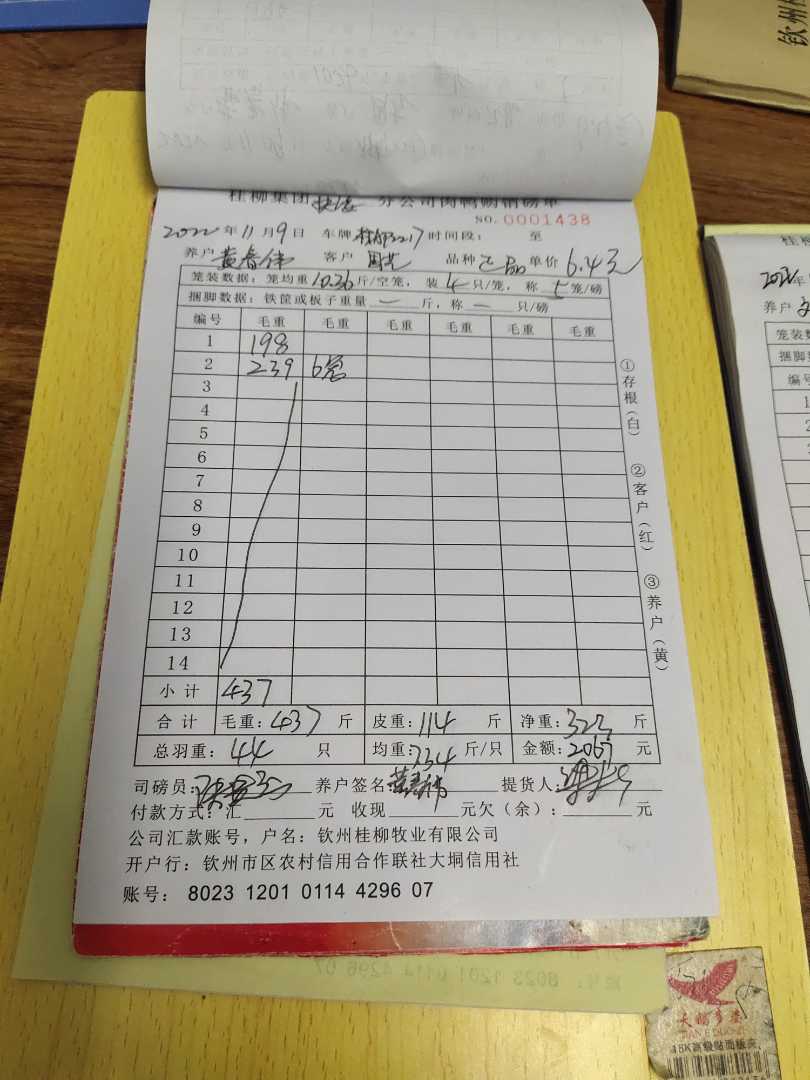 桂柳集团 分公司肉鸭场销磅单
NO. 0001438
2022年11月9日 车牌 3217 时间段： 至
养户 黄春伟 客户 周艺 品种 正品 单价 6.4元
笼装数据：笼均重 10.36 斤/空笼，装 4 只/笼，称 5 笼/磅
捆脚数据：铁筐或板子重量 — 斤，称 — 只/磅
编号 毛重 毛重 毛重 毛重 毛重 毛重
1 198
2 239 6笼
3
4
5
6
7
8
9
10
11
12
13
14
小计 437
合计 毛重：437 斤 皮重：114 斤 净重：323 斤
总羽重：44 只 均重：7.34 斤/只 金额：2067 元
司磅员： 养户签名 黄春伟 提货人：
付款方式：汇 元 收现 元欠（余）： 元
公司汇款账号，户名：钦州桂柳牧业有限公司
开户行：钦州市区农村信用合作联社大垌信用社
账号： 8023 1201 0114 4296 07
①存根（白） ②客户（红） ③养户（黄）
钦州桂
桂柳
2022年
养户
笼装数
捆脚
编号
大鹏多楚
15K高级贴面板夹